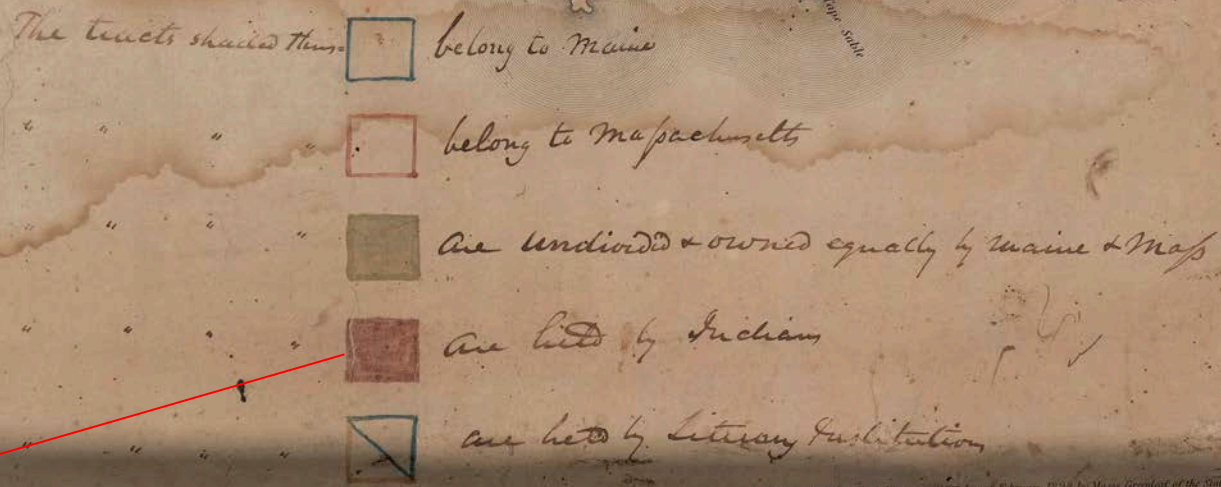 Cape Sable
The tracts shaded thus= belong to Maine
" " " " belong to Massachusetts
" " " " are undivided & owned equally by Maine & Mass
" " " " are held by Indians
" " " " are held by Literary Institutions
1828 by Moses Greenleaf of the